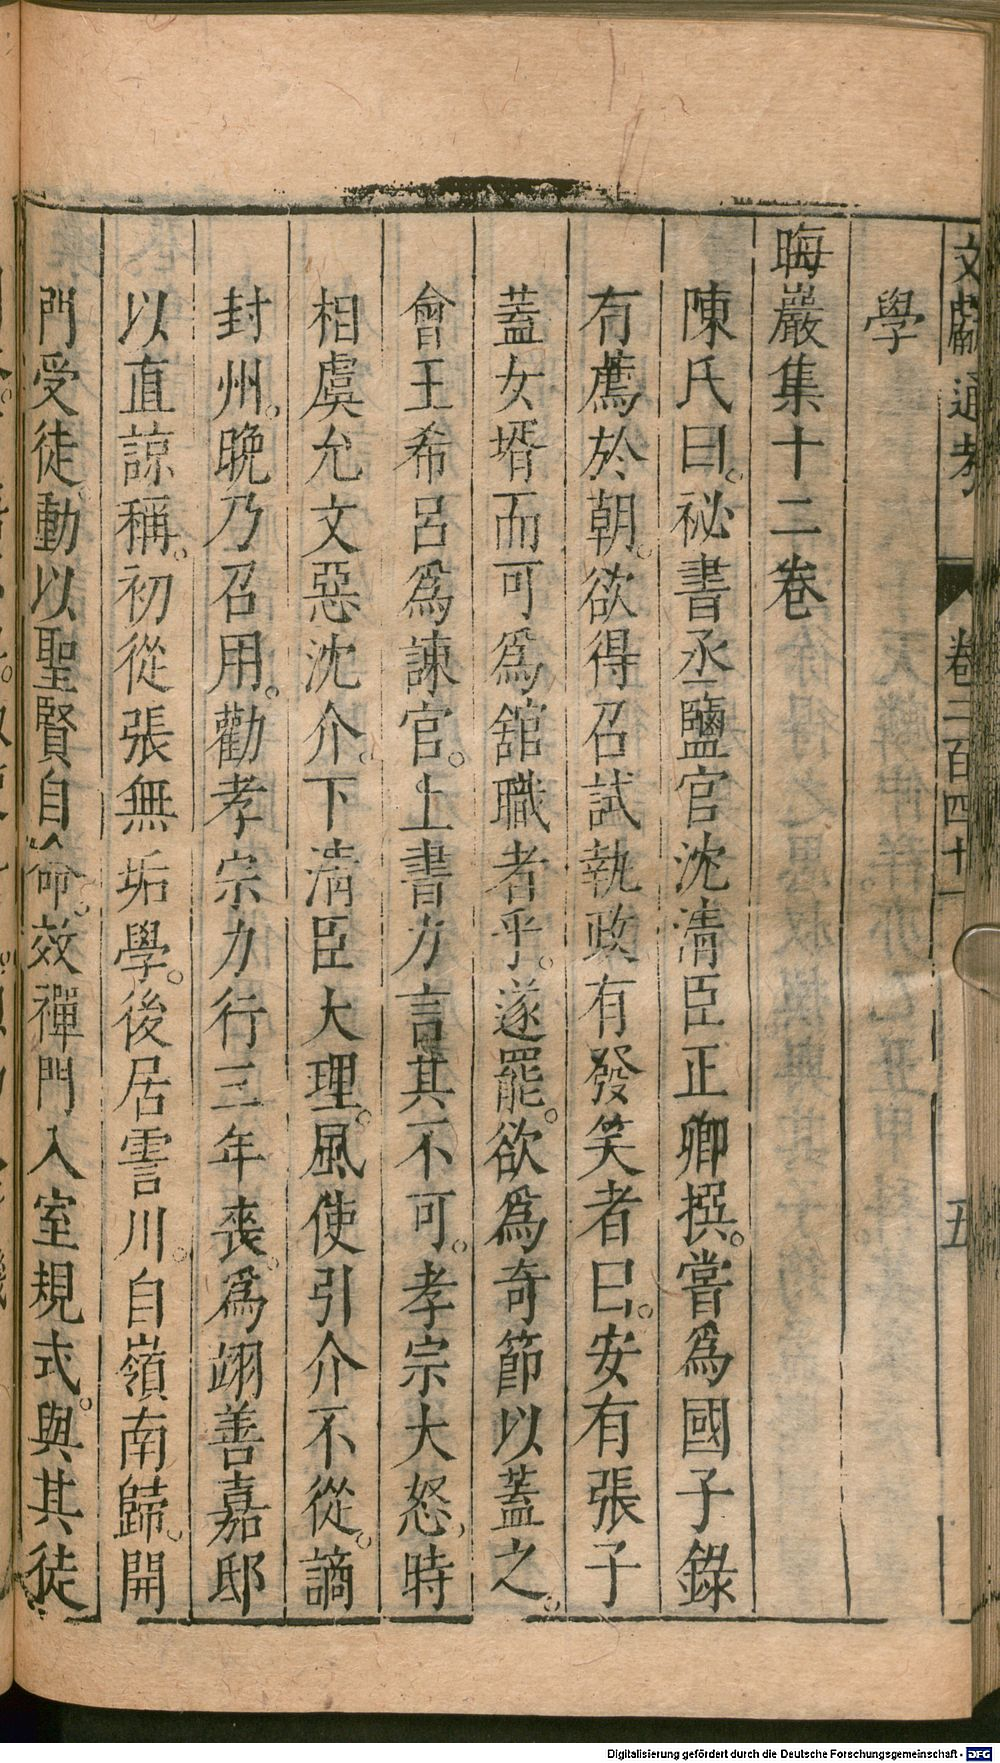 文獻通考 卷二百四十一 五
學
晦巖集十二卷
陳氏曰。祕書丞鹽官沈清臣正卿撰。嘗爲國子錄
有薦於朝。欲得召試執政有發笑者曰。安有張子
蓋女壻而可爲舘職者乎。遂罷。欲爲奇節以蓋之。
會王希呂爲諫官。上書力言其不可。孝宗大怒。時
相虞允文惡沈介。下清臣大理。風使引介不從。謫
封州。晚乃召用。勸孝宗力行三年喪。爲翊善嘉邸
以直諒稱。初從張無垢學。後居霅川。自嶺南歸。開
門受徒。動以聖賢自命。效禪門入室規式。與其徒
Digitalisierung gefördert durch die Deutsche Forschungsgemeinschaft - DFG